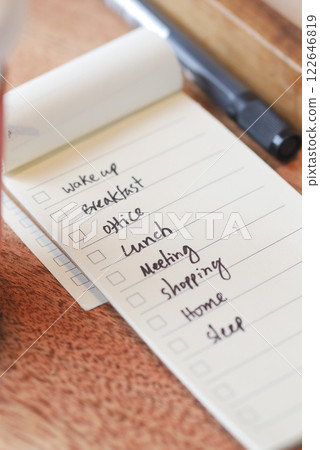 wake up
Breakfast
office
Lunch
Meeting
shopping
Home
sleep
PIXTA
122646819